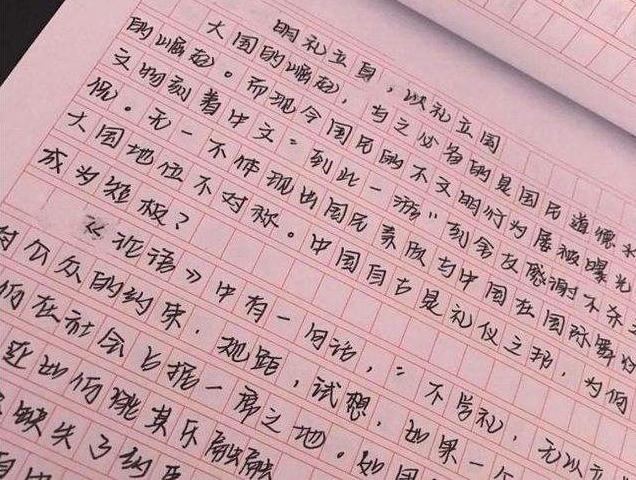 明礼立身，以礼立国
大国的崛起，与之必备的是国民道德水
的崛起。而现今国民的不文明行为屡被曝光
文物刻着中文"到此一游"刻舍友感谢不杀
况。无一不体现出国民素质与中国在国际舞
大国地位不对称。中国自古是礼仪之邦，为何
成为短板？
《论语》中有一句话，"不学礼，无以立
对公众的约束，规距，试想，如果一个
何在社会占据一席之地。如果
赴如何能其乐融融
缺失了约束